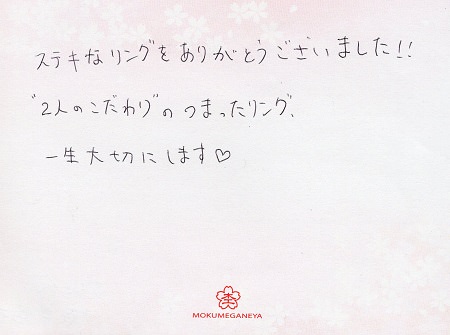 ステキなリングをありがとうございました!!
"2人のこだわり"のつまったリング、
一生大切にします♡
MOKUMEGANEYA